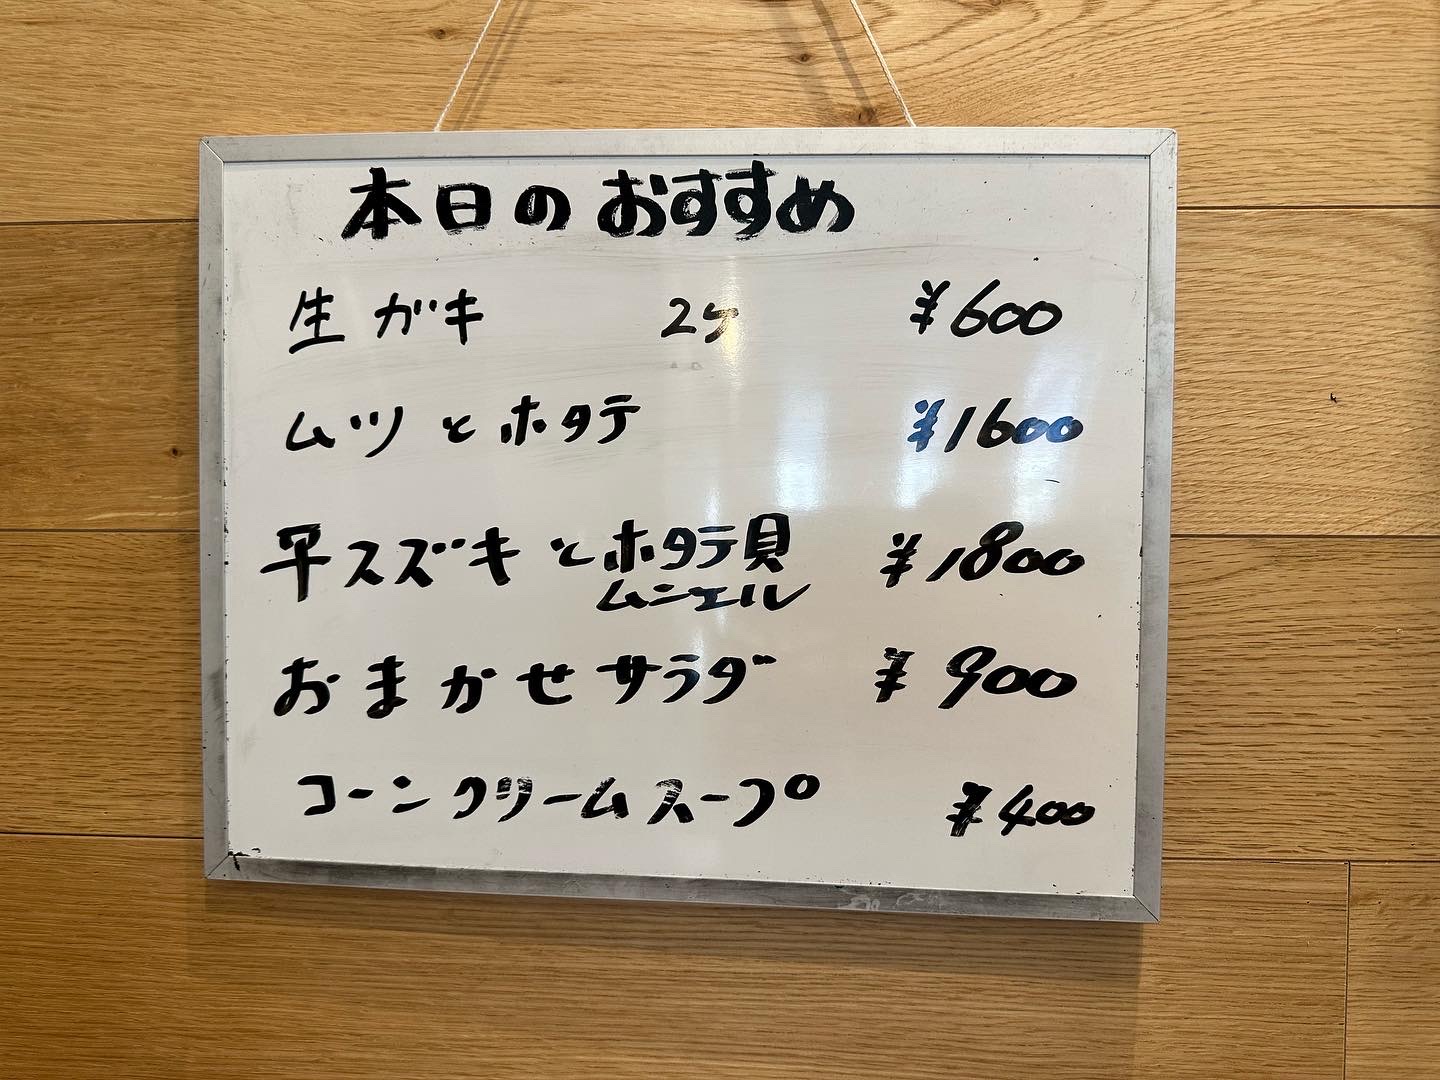 本日のおすすめ
生ガキ 2ケ ¥600
ムツとホタテ ¥1600
平スズキとホタテ貝 ¥1800
ムニエル
おまかせサラダ ¥900
コーンクリームスープ ¥400